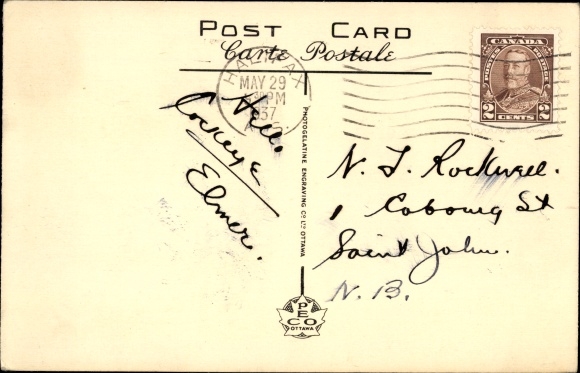 POST CARD
Carte Postale
HALIFAX
MAY 29
PM
37
Hello
Cockeye
Elmer.
PHOTOGELATINE ENGRAVING CO LTD OTTAWA
PECO
OTTAWA
CANADA
POSTES POSTAGE
2 CENTS 2
N. J. Rockwell.
1 Cobourg St
Saint John.
N. B.